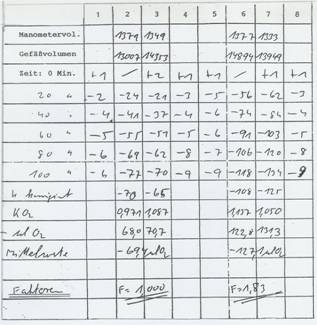 1 2 3 4 5 6 7 8
Manometervol. 1379 1349 1377 1333
Gefäßvolumen 13007 14313 14894 13949
Zeit: 0 Min. +1 / +2 +1 +1 / +1 +1
20 " -2 -24 -21 -3 -5 -36 -62 -3
40 " -4 -41 -37 -4 -6 -74 -84 -4
60 " -5 -55 -51 -5 -6 -91 -103 -5
80 " -6 -69 -62 -8 -7 -106 -120 -8
100 " -6 -77 -70 -9 -8 -118 -134 -9
-70 -65 -108 -125
KO2 0,971 1087 1137 1050
µl O2 68,0 70,7 122,8 131,3
Mittelwerte -69,4 µl O2 -127,1 µl O2
Faktoren F = 1,000 F = 1,83